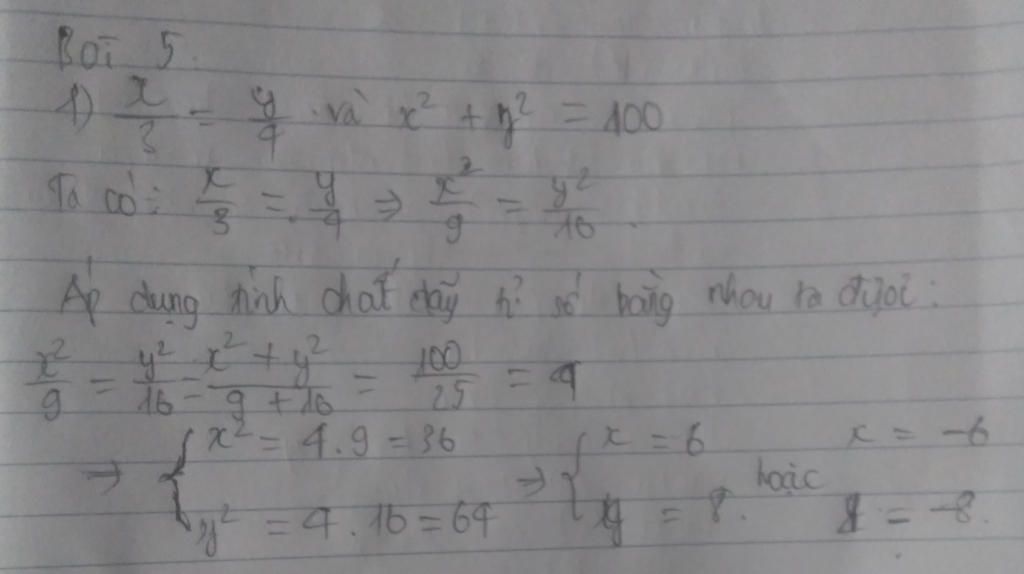 Bài 5.
1) x/3 = y/4 và x² + y² = 100
Ta có: x/3 = y/4 ⇒ x²/9 = y²/16.
Áp dụng tính chất dãy tỉ số bằng nhau ta được:
x²/9 = y²/16 = x² + y²/9 + 16 = 100/25 = 4
⇒ { x² = 4.9 = 36 ⇒ { x = 6 hoặc x = -6
y² = 4.16 = 64 y = 8. y = -8.